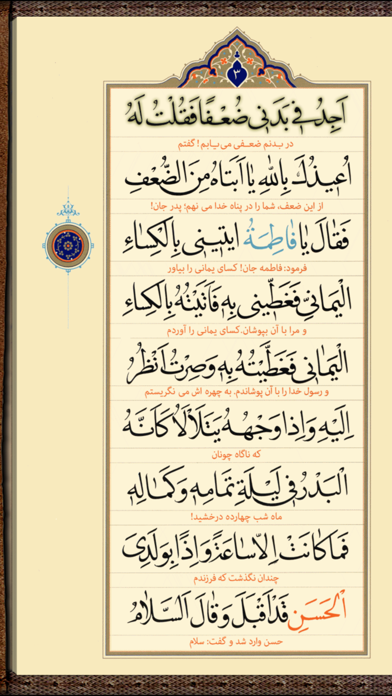 ۳
اَجِدُ فِي بَدَنِي ضُعْفًا فَقُلْتُ لَهُ
در بدنم ضعفی می‌یابم! گفتم
اُعِيذُكَ بِاللّٰهِ يَا اَبَتَاهُ مِنَ الضُّعْفِ
از این ضعف، شما را در پناه خدا می نهم؛ پدر جان!
فَقَالَ يَا فَاطِمَةُ ايتِينِي بِالْكِسَاءِ
فرمود: فاطمه جان! کسای یمانی را بیاور
الْيَمَانِيِّ فَغَطِّينِي بِهِ فَاَتَيْتُهُ بِالْكِسَاءِ
و مرا با آن بپوشان.کسای یمانی را آوردم
الْيَمَانِي فَغَطَّيْتُهُ بِهِ وَصِرْتُ اَنْظُرُ
و رسول خدا را با آن پوشاندم. به چهره اش می نگریستم
اِلَيْهِ وَاِذَا وَجْهُهُ يَتَلَأْلَأُ كَاَنَّهُ
که ناگاه چونان
الْبَدْرُ فِي لَيْلَةِ تَمَامِهِ وَكَمَالِهِ
ماه شب چهارده درخشید!
فَمَا كَانَتْ اِلَّا سَاعَةً وَاِذَا بِوَلَدِيَ
چندان نگذشت که فرزندم
الْحَسَنِ قَدْ اَقْبَلَ وَقَالَ اَلسَّلَامُ
حسن وارد شد و گفت: سلام